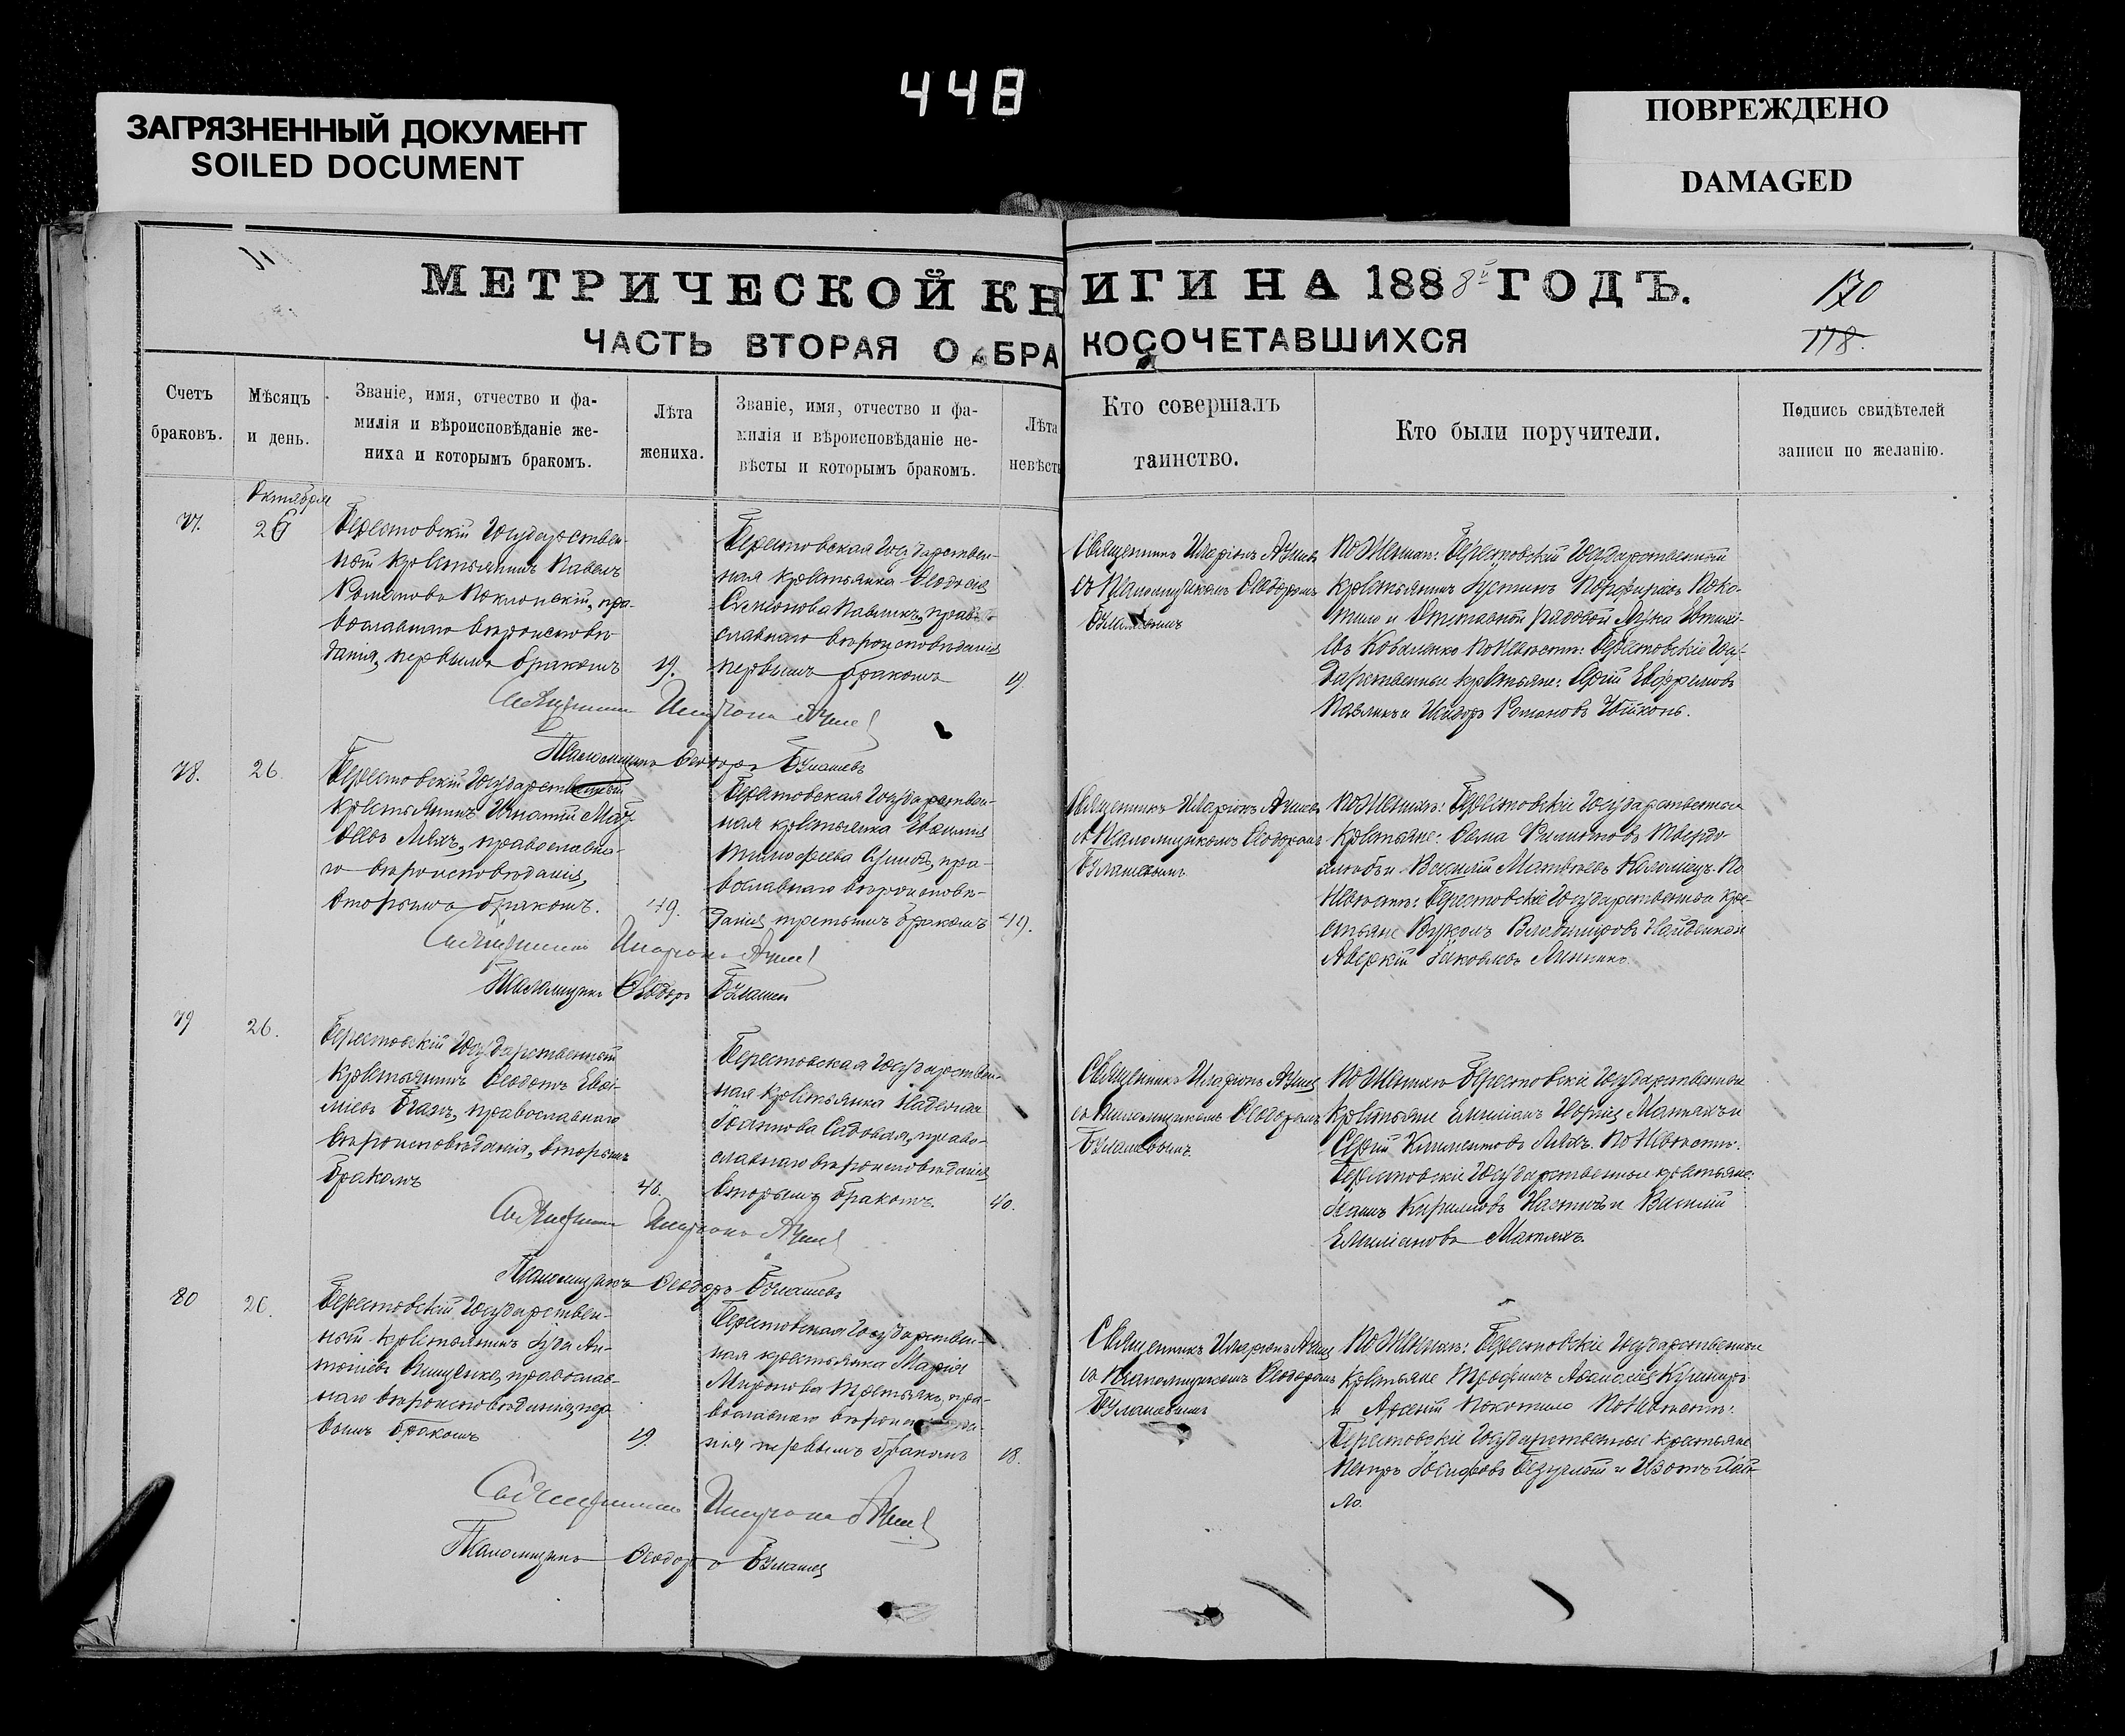 448
ЗАГРЯЗНЕННЫЙ ДОКУМЕНТ
SOILED DOCUMENT
ПОВРЕЖДЕНО
DAMAGED
МЕТРИЧЕСКОЙ КНИГИ НА 1888й ГОДЪ.
170
178.
ЧАСТЬ ВТОРАЯ О БРАКОСОЧЕТАВШИХСЯ
Счетъ
браковъ.
Мѣсяцъ
и день.
Званіе, имя, отчество и фа-
милія и вѣроисповѣданіе же-
ниха и которымъ бракомъ.
Лѣта
жениха.
Званіе, имя, отчество и фа-
милія и вѣроисповѣданіе не-
вѣсты и которымъ бракомъ.
Лѣта
невѣсты
Кто совершалъ
таинство.
Кто были поручители.
Подпись свидѣтелей
записи по желанію.
77.
Октября
26
Берестовскій Государствен-
ный крестьянинъ Павелъ
Романовъ Поклонскій, пра-
вославнаго вѣроисповѣ-
данія, первымъ бракомъ
19.
Берестовская Государствен-
ная крестьянка Ѳеодосія
Симеонова Павликъ, право
славнаго вѣроисповѣданія
первымъ бракомъ
19.
Священникъ Иларіонъ
съ Псаломщикомъ Ѳеодоромъ
По Женихѣ: Берестовскій Государственный
крестьянинъ Іустинъ Порфиріевъ Поко-
тило и Отставной рядовой Лука Евтихі-
евъ Коваленко По Невѣстѣ: Берестовскіе Госу-
дарственные крестьяне: Сергій Евфремовъ
Павликъ и Исидоръ Романовъ
Священникъ Иларіонъ
Псаломщикъ Ѳеодоръ
78.
26.
Берестовскій Государственный
крестьянинъ Игнатій Мат-
ѳеевъ Ляхъ, православна-
го вѣроисповѣданія,
вторымъ бракомъ.
49.
Берестовская Государствен-
ная крестьянка Евѳимія
Тимофеева пра-
вославнаго вѣроисповѣ-
данія третьимъ бракомъ
49.
Священникъ Иларіонъ
съ Псаломщикомъ Ѳеодоромъ
По Женихѣ: Берестовскіе Государственные
крестьяне: Ѳома Филиповъ Твердо-
хлѣбъ и Василій Матвѣевъ Коломіецъ. По
Невѣстѣ: Берестовскіе Государственные кре-
стьяне Вуколъ Владиміровъ
Аверкій Яковлевъ Линникъ.
Священникъ Иларіонъ
Псаломщикъ Ѳеодоръ
79
26.
Берестовскій Государственный
крестьянинъ Ѳеодотъ Евѳи-
міевъ православнаго
вѣроисповѣданія, вторымъ
бракомъ
46.
Берестовская Государствен-
ная крестьянка Надежда
Садовая, право-
славнаго вѣроисповѣданія
вторымъ бракомъ.
40.
Священникъ Иларіонъ
съ псаломщикомъ Ѳеодоромъ
По Женихѣ Берестовскіе Государственные
крестьяне Емиліанъ
Сергій Климентовъ Ляхъ. По Невѣстѣ:
Берестовскіе Государственные крестьяне:
Іоаннъ Кириловъ и Василій
Емиліановъ
Священникъ Иларіонъ
Псаломщикъ Ѳеодоръ
80
26.
Берестовскій Государствен-
ный крестьянинъ Іуда Ан-
тоніевъ Онищенко, православ-
наго вѣроисповѣданія, пер
вымъ бракомъ
19.
Берестовская Государствен-
ная крестьянка Марія
Миронова Третьякъ, пра-
вославнаго
нія первымъ бракомъ
18.
Священникъ Иларіонъ
съ Псаломщикомъ Ѳеодоромъ
По Женихѣ: Берестовскіе Государственные
крестьяне Трофимъ
и Арсеній Покотило По Невѣстѣ:
Берестовскіе Государственные крестьяне
Петръ Іосифовъ и Изотъ
Священникъ Иларіонъ
Псаломщикъ Ѳеодоръ